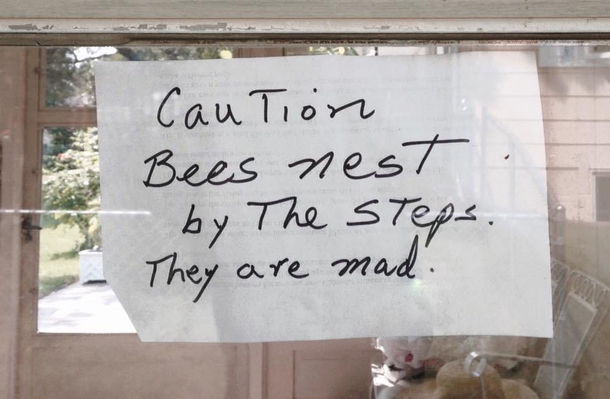 Caution
Bees nest
by The STeps.
They are mad.